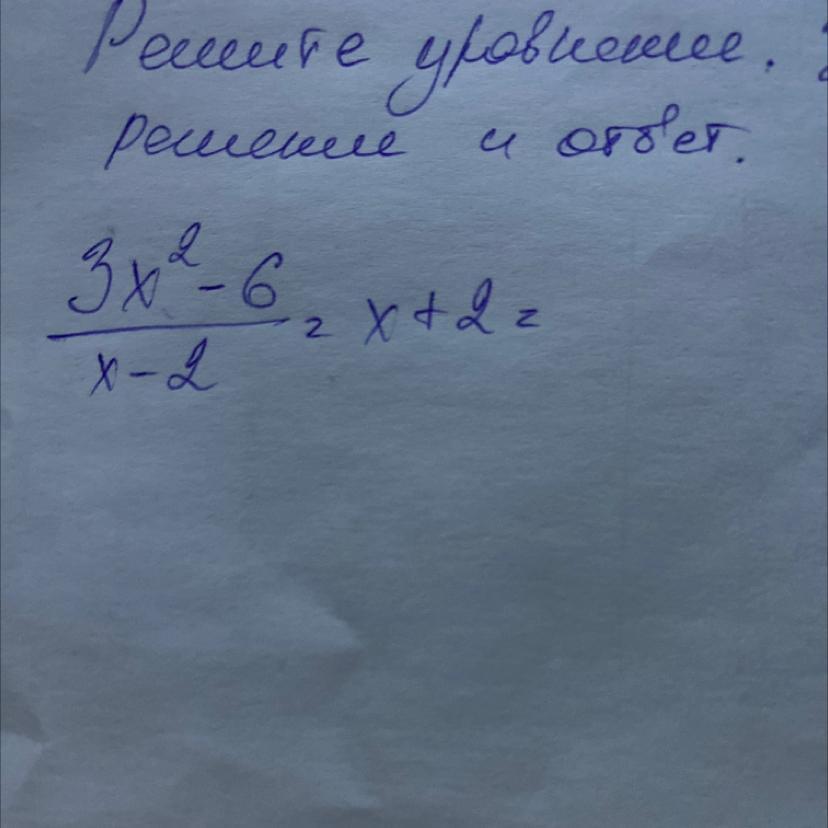 Решите уровнение.
решение и ответ.
3x² - 6
x - 2
= x + 2 =